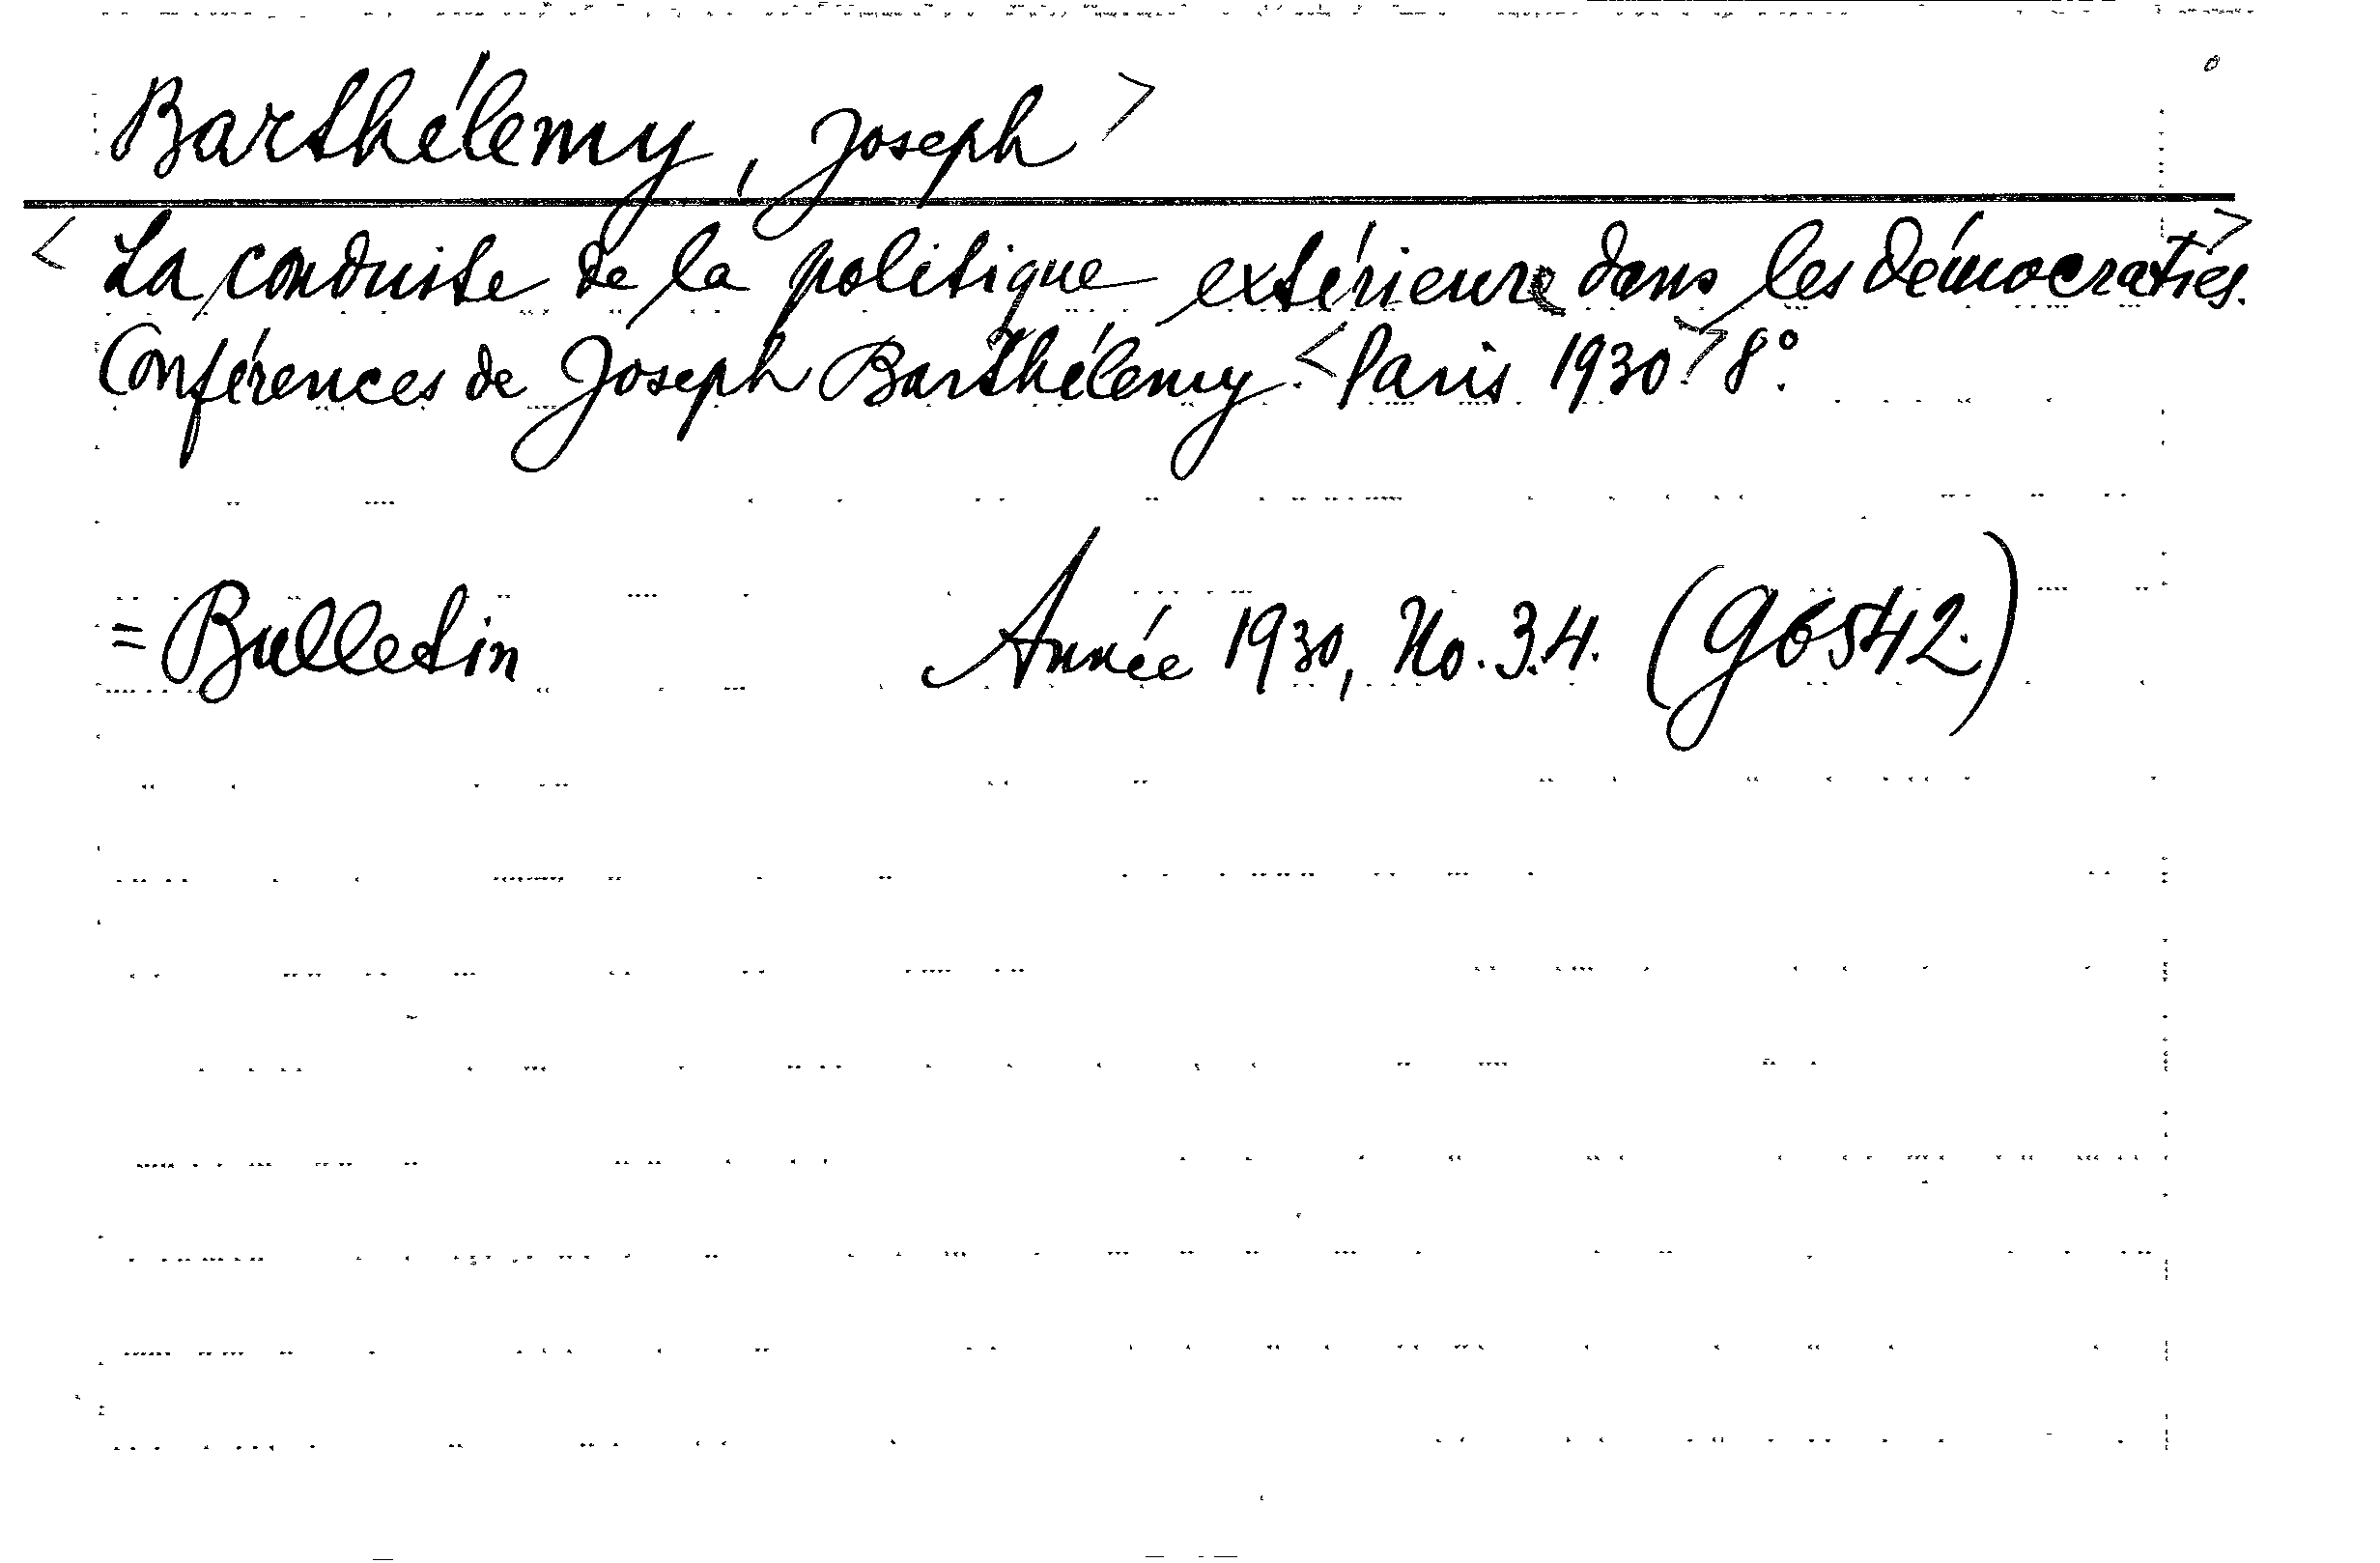 Barthélemy, Joseph >
< La conduite de la politique extérieure dans les démocraties. >
Conférences de Joseph Barthélemy. < Paris 1930. > 8°.
= Bulletin Année 1930, No. 3.4. (g6542.)